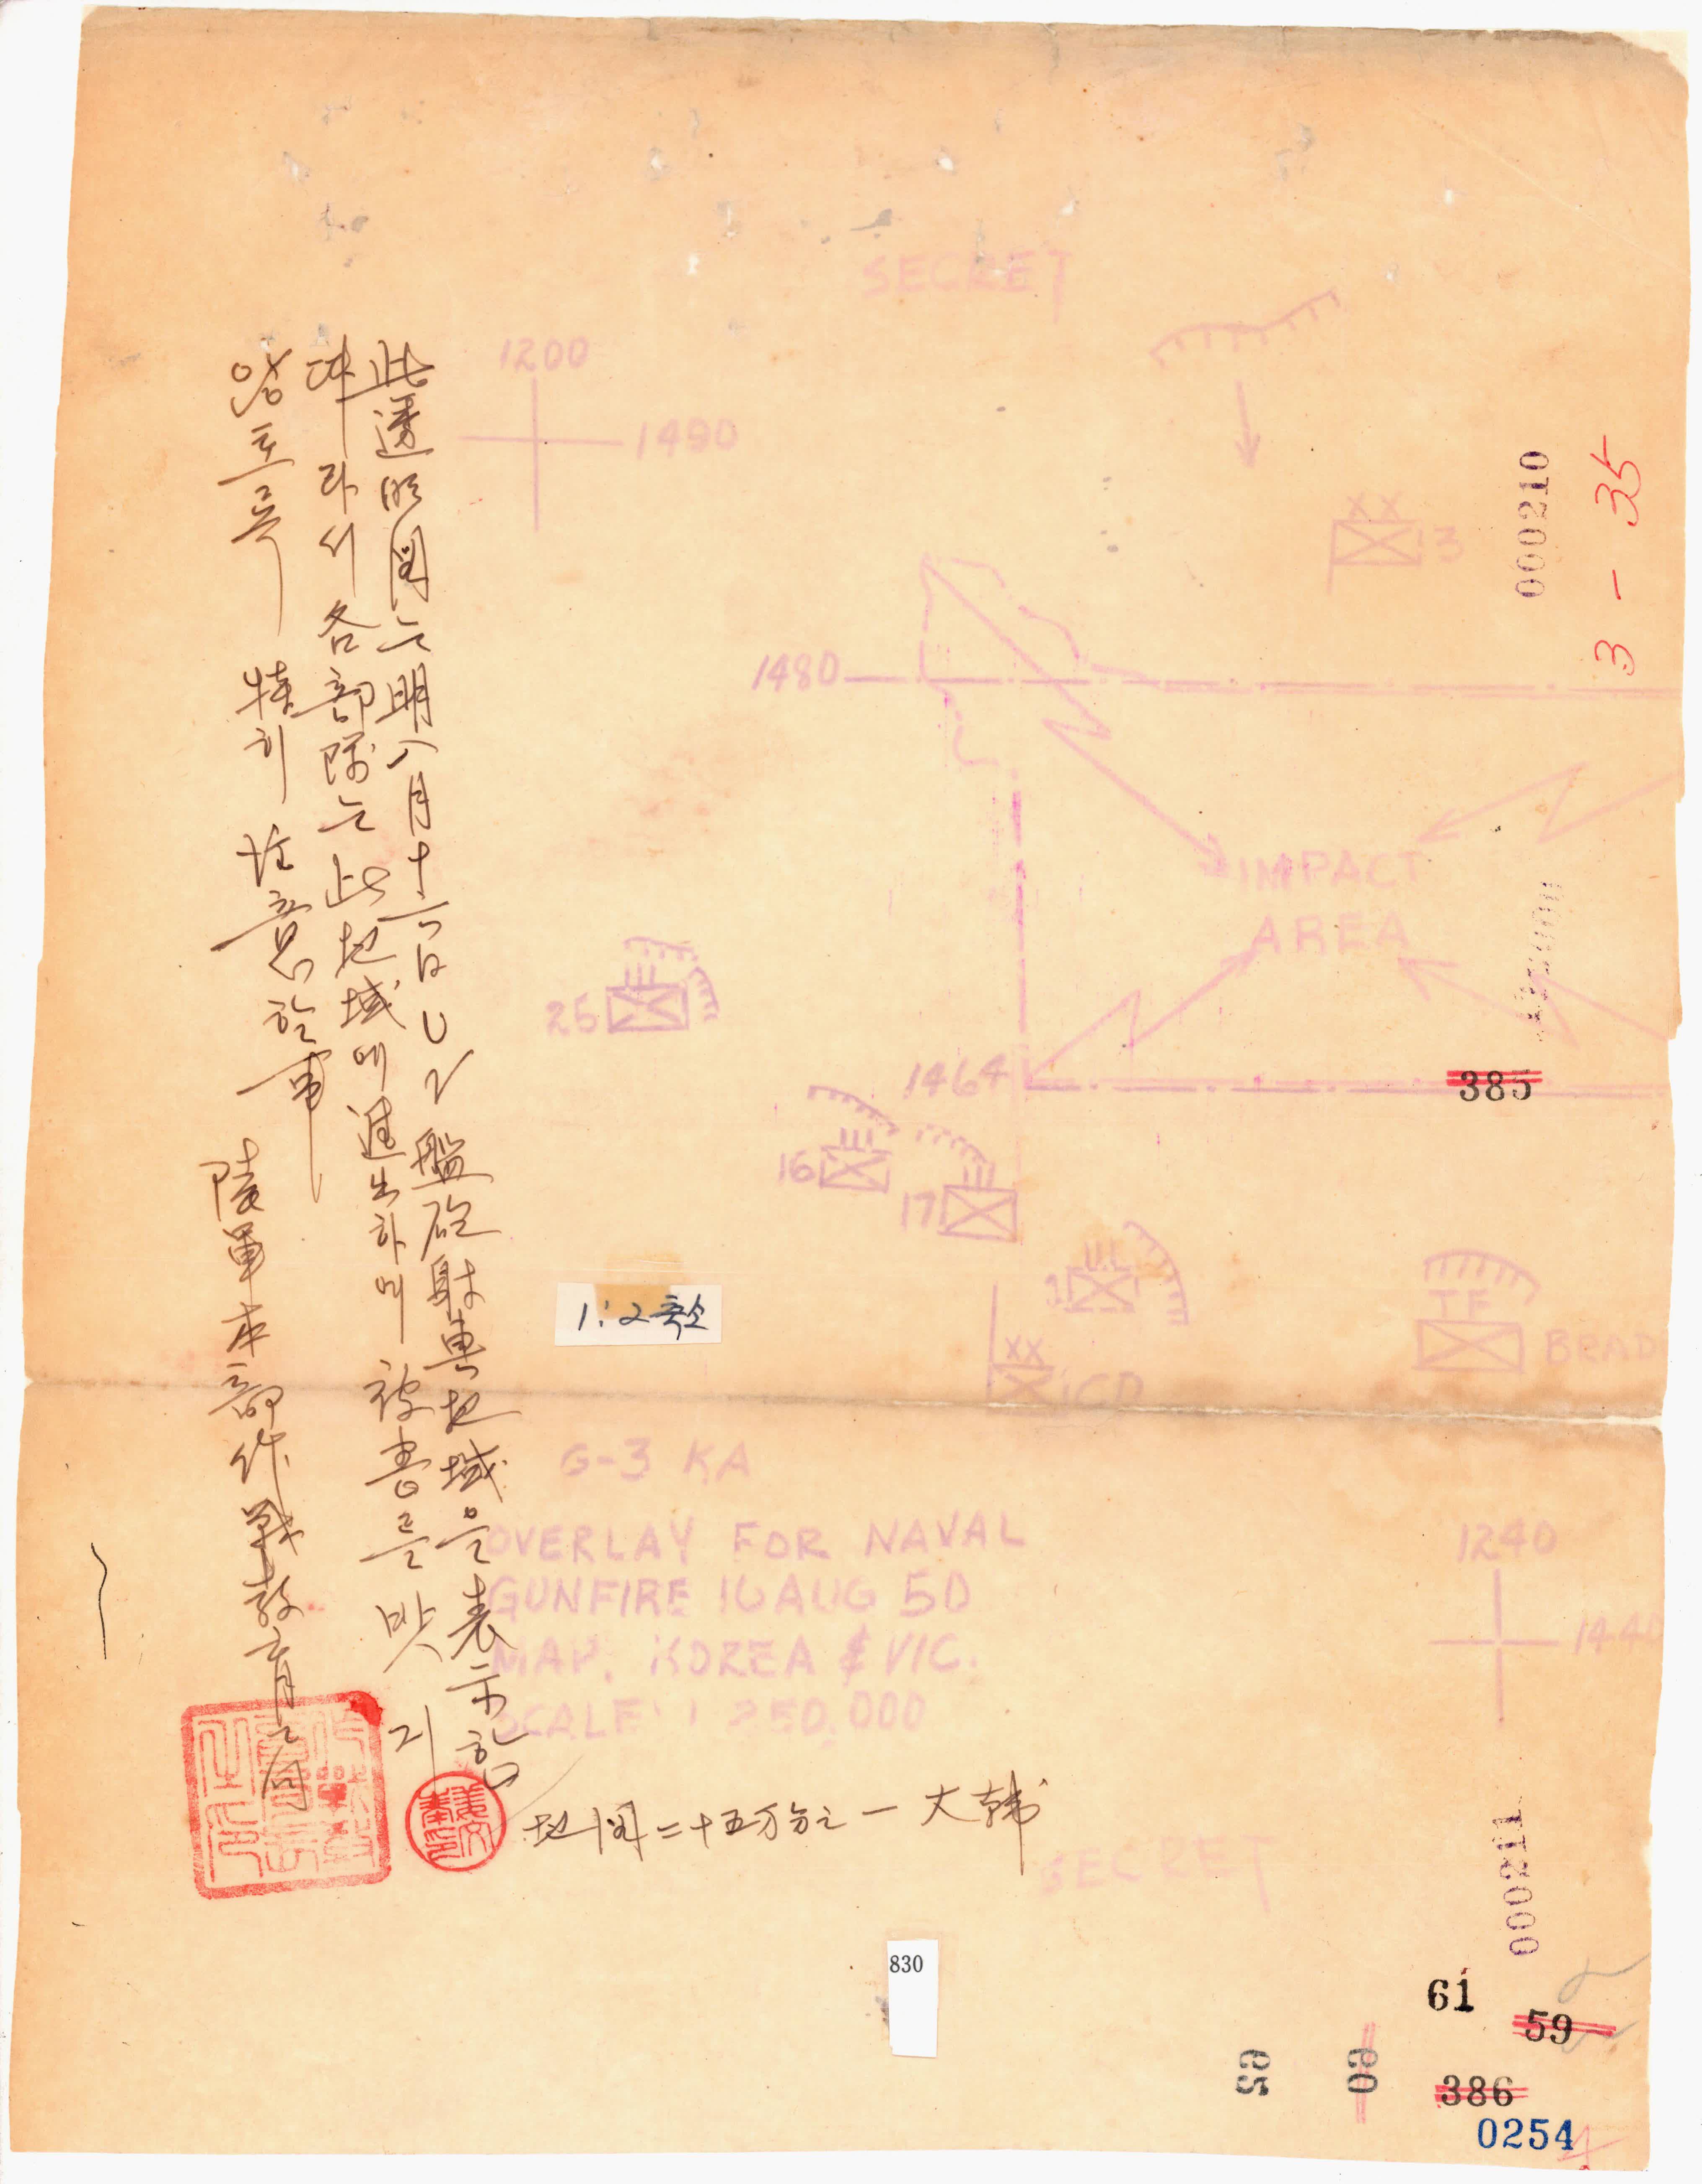 SECRET
1200
1490
XX
13
1480
IMPACT
AREA
25
1464
16
17
1
XX
1CD
TF
BRAD
G-3 KA
OVERLAY FOR NAVAL
GUNFIRE 16 AUG 50
MAP. KOREA & VIC.
SCALE: 1:250,000
1240
1440
SECRET
此透明図는明八月十六日UN艦砲射擊地域을表示함
따라서各部隊는此地域에進出하여被害를맛지
않토록 特히 注意할事
陸軍本部作戰敎育局
地図二十五万分之一 大韓
1:2축소
3-35
000210
385
000211
830
61
59
65
60
386
0254